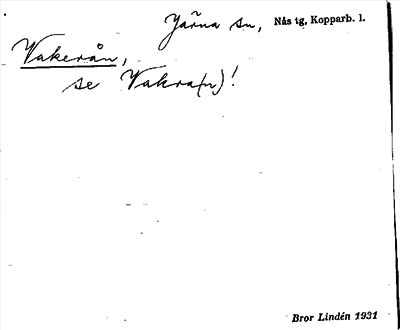 Järna sn, Nås tg, Kopparb. l.
Vakerån,
se Vakra(n)!
Bror Lindén 1931